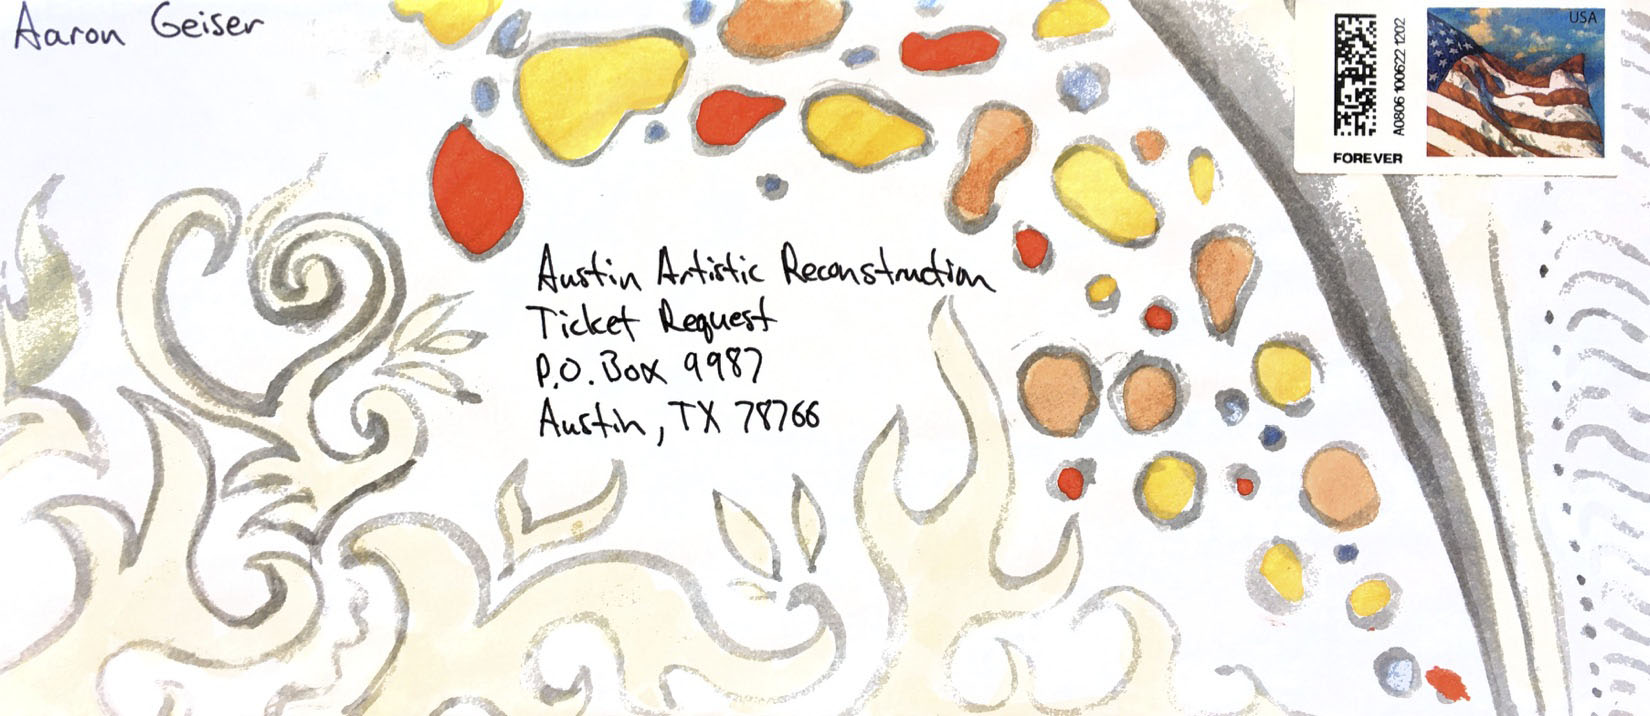 Aaron Geiser
USA
A0806 100622 1202
FOREVER
Austin Artistic Reconstruction
Ticket Request
P.O. Box 9987
Austin, TX 78766